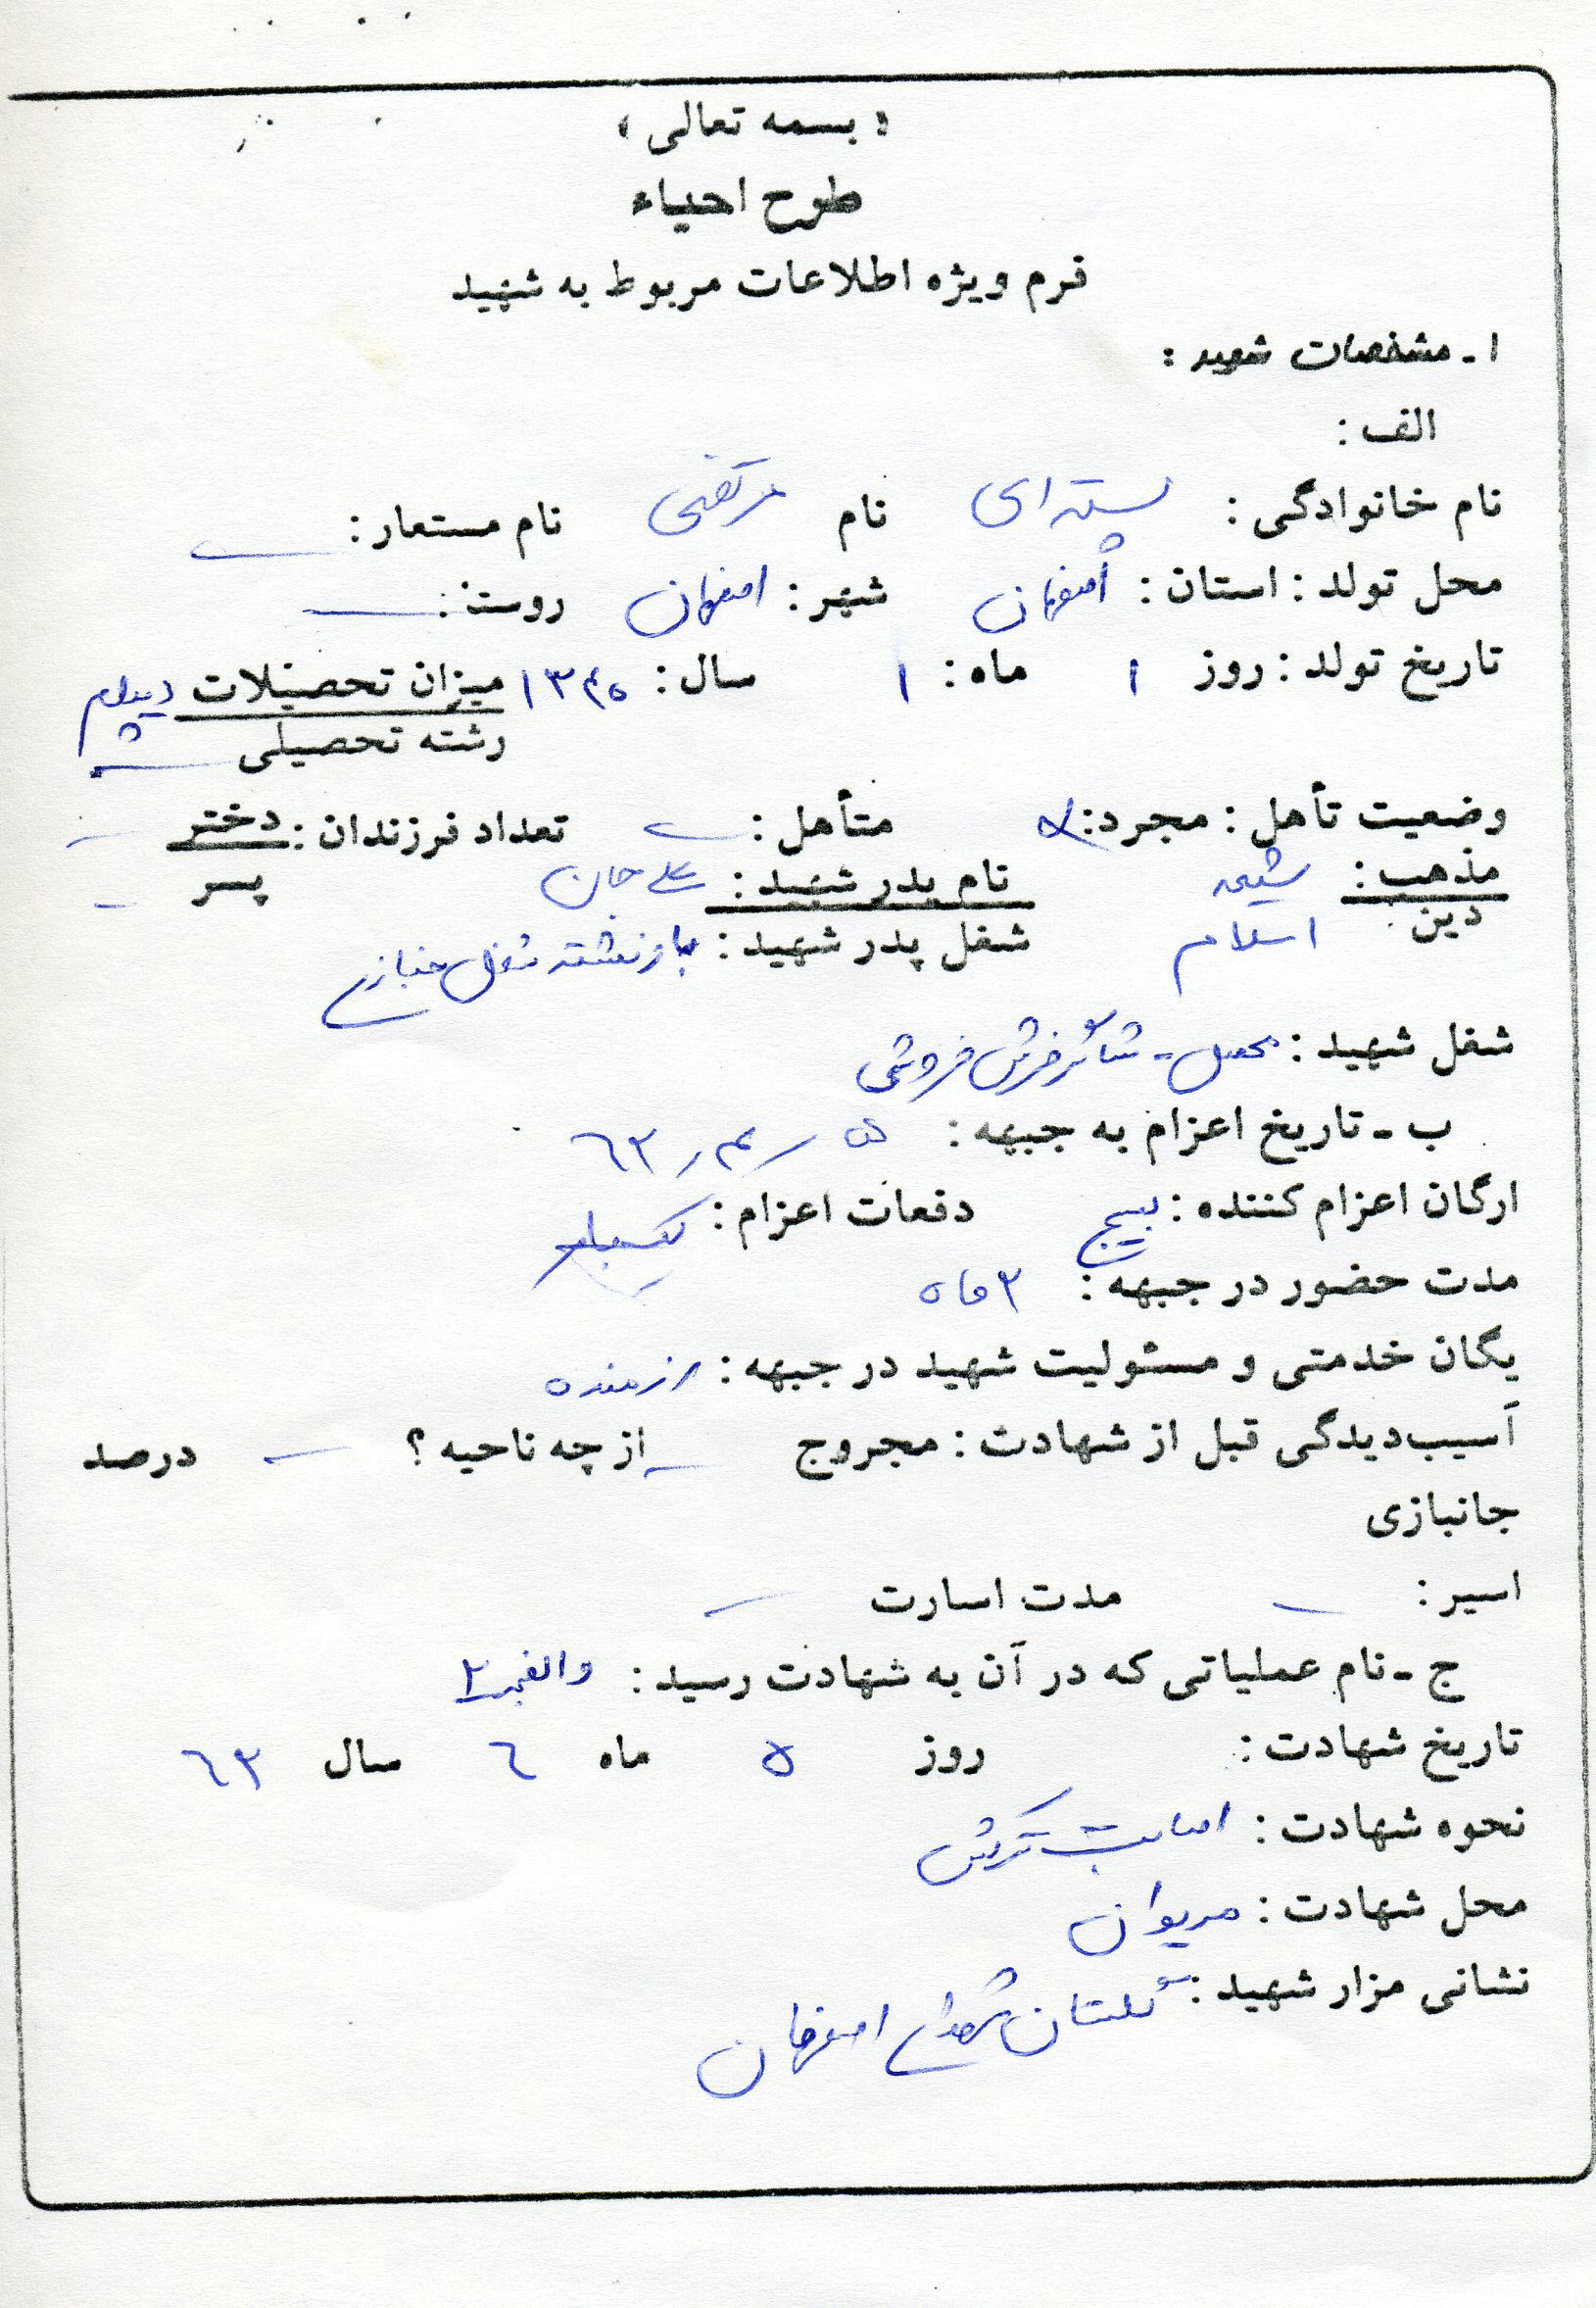 « بسمه تعالی »
طرح احیاء
فرم ویژه اطلاعات مربوط به شهید
۱ ـ مشخصات شهید :
الف :
نام خانوادگی : پسته ای نام مرتضی نام مستعار : ـ
محل تولد : استان : اصفهان شهر : اصفهان روستا : ـ
تاریخ تولد : روز ۱ ماه : ۱ سال : ۱۳۴۵ میزان تحصیلات دیپلم
رشته تحصیلی ـ
وضعیت تأهل : مجرد : متأهل : ـ تعداد فرزندان : دختر ـ
مذهب : شیعه نام پدر شهید : علی جان پسر ـ
دین اسلام شغل پدر شهید : بازنشسته شغل خبازی
شغل شهید : محصل - شاگرد فرش فروشی
ب ـ تاریخ اعزام به جبهه : ۶۳
ارگان اعزام کننده : بسیج دفعات اعزام : یکبار
مدت حضور در جبهه : ۳ ماه
یگان خدمتی و مسئولیت شهید در جبهه : رزمنده
آسیب‌دیدگی قبل از شهادت : مجروح ـ از چه ناحیه ؟ ـ درصد
جانبازی
اسیر : ـ مدت اسارت ـ
ج ـ نام عملیاتی که در آن به شهادت رسید : والفجر
تاریخ شهادت : روز ۵ ماه ۶ سال ۶۳
نحوه شهادت : اصابت ترکش
محل شهادت : مریوان
نشانی مزار شهید : گلستان شهدای اصفهان